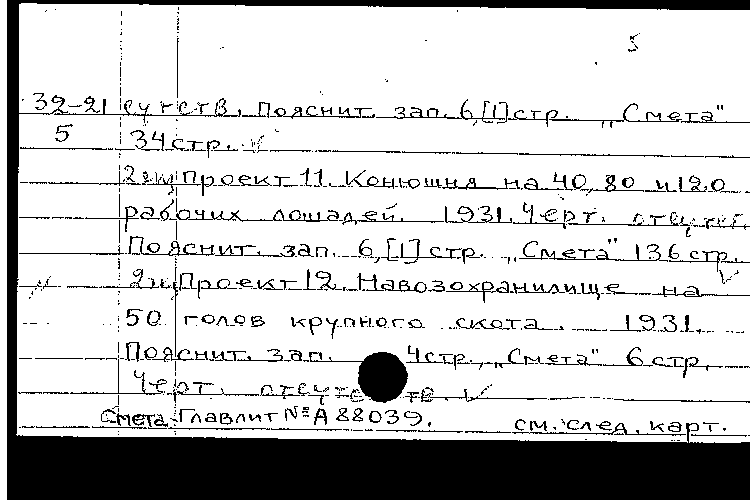 5
32-21 сутств. Пояснит. зап. 6,[1]стр. „Смета"
5 34 стр. v
2 экз Проект 11. Конюшня на 40, 80 и 120
рабочих лошадей. 1931. Черт. отсутст.
Пояснит. зап. 6,[1] стр. „Смета" 136 стр.
Проект 12. Навозохранилище на
50 голов крупного скота. 1931.
Пояснит. зап. 4 стр., „Смета" 6 стр.
Черт. отсутств. v
Смета. Главлит № А 88039. см. след. карт.